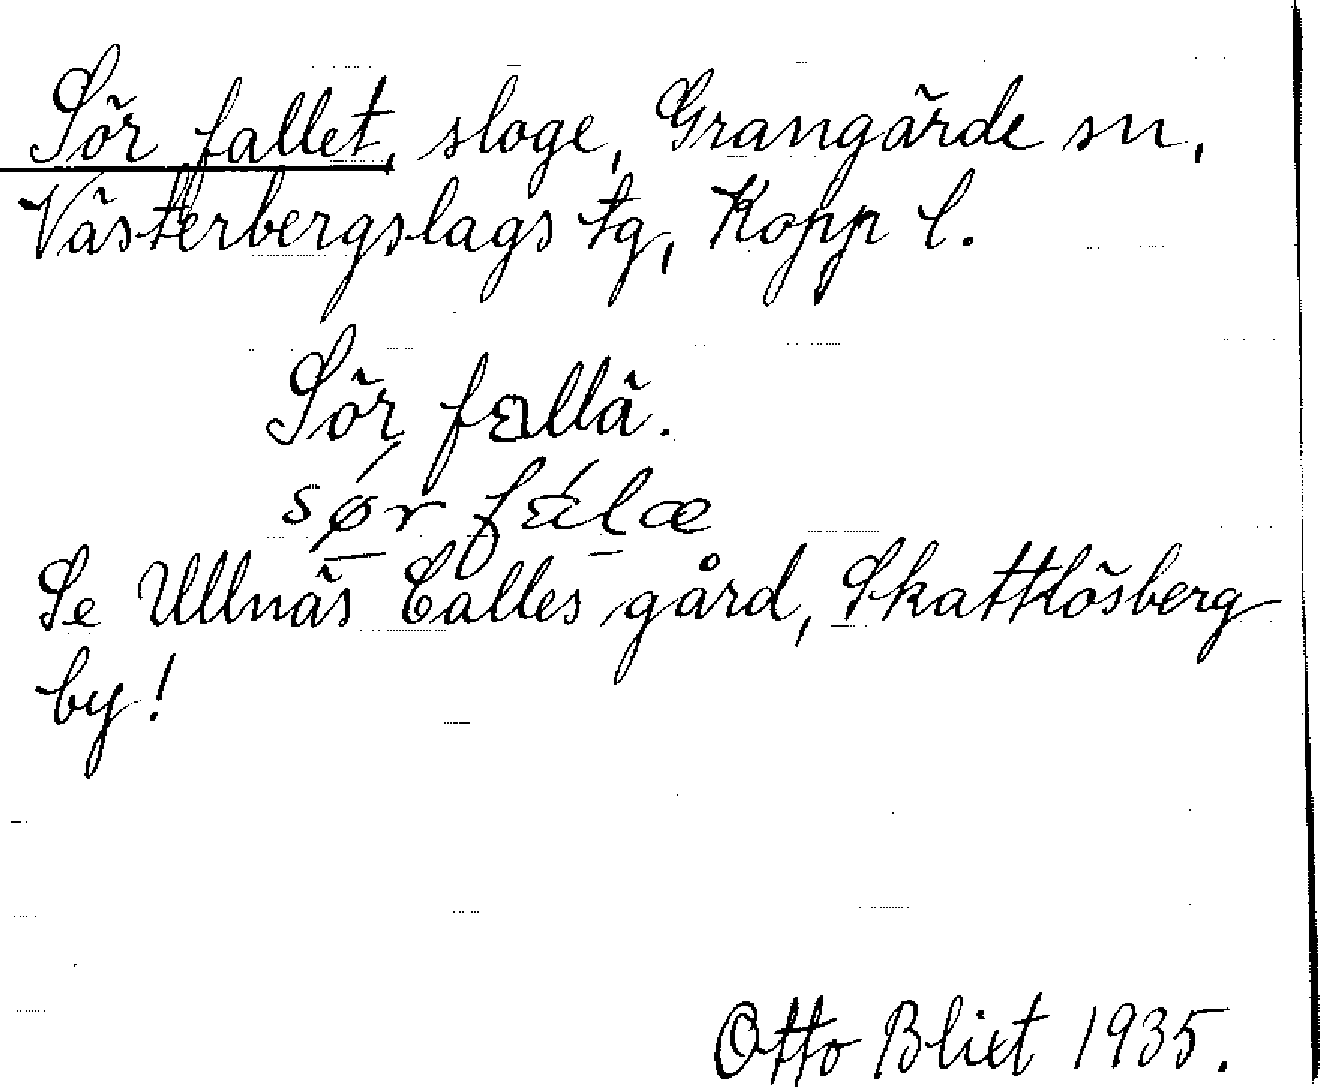 Sör fallet, sloge, Grangärde sn,
Västerbergslags tg, Kopp l.
Sör fallä.
Se Ullnäs Calles gård, Skattlösberg
by!
Otto Blixt 1935.